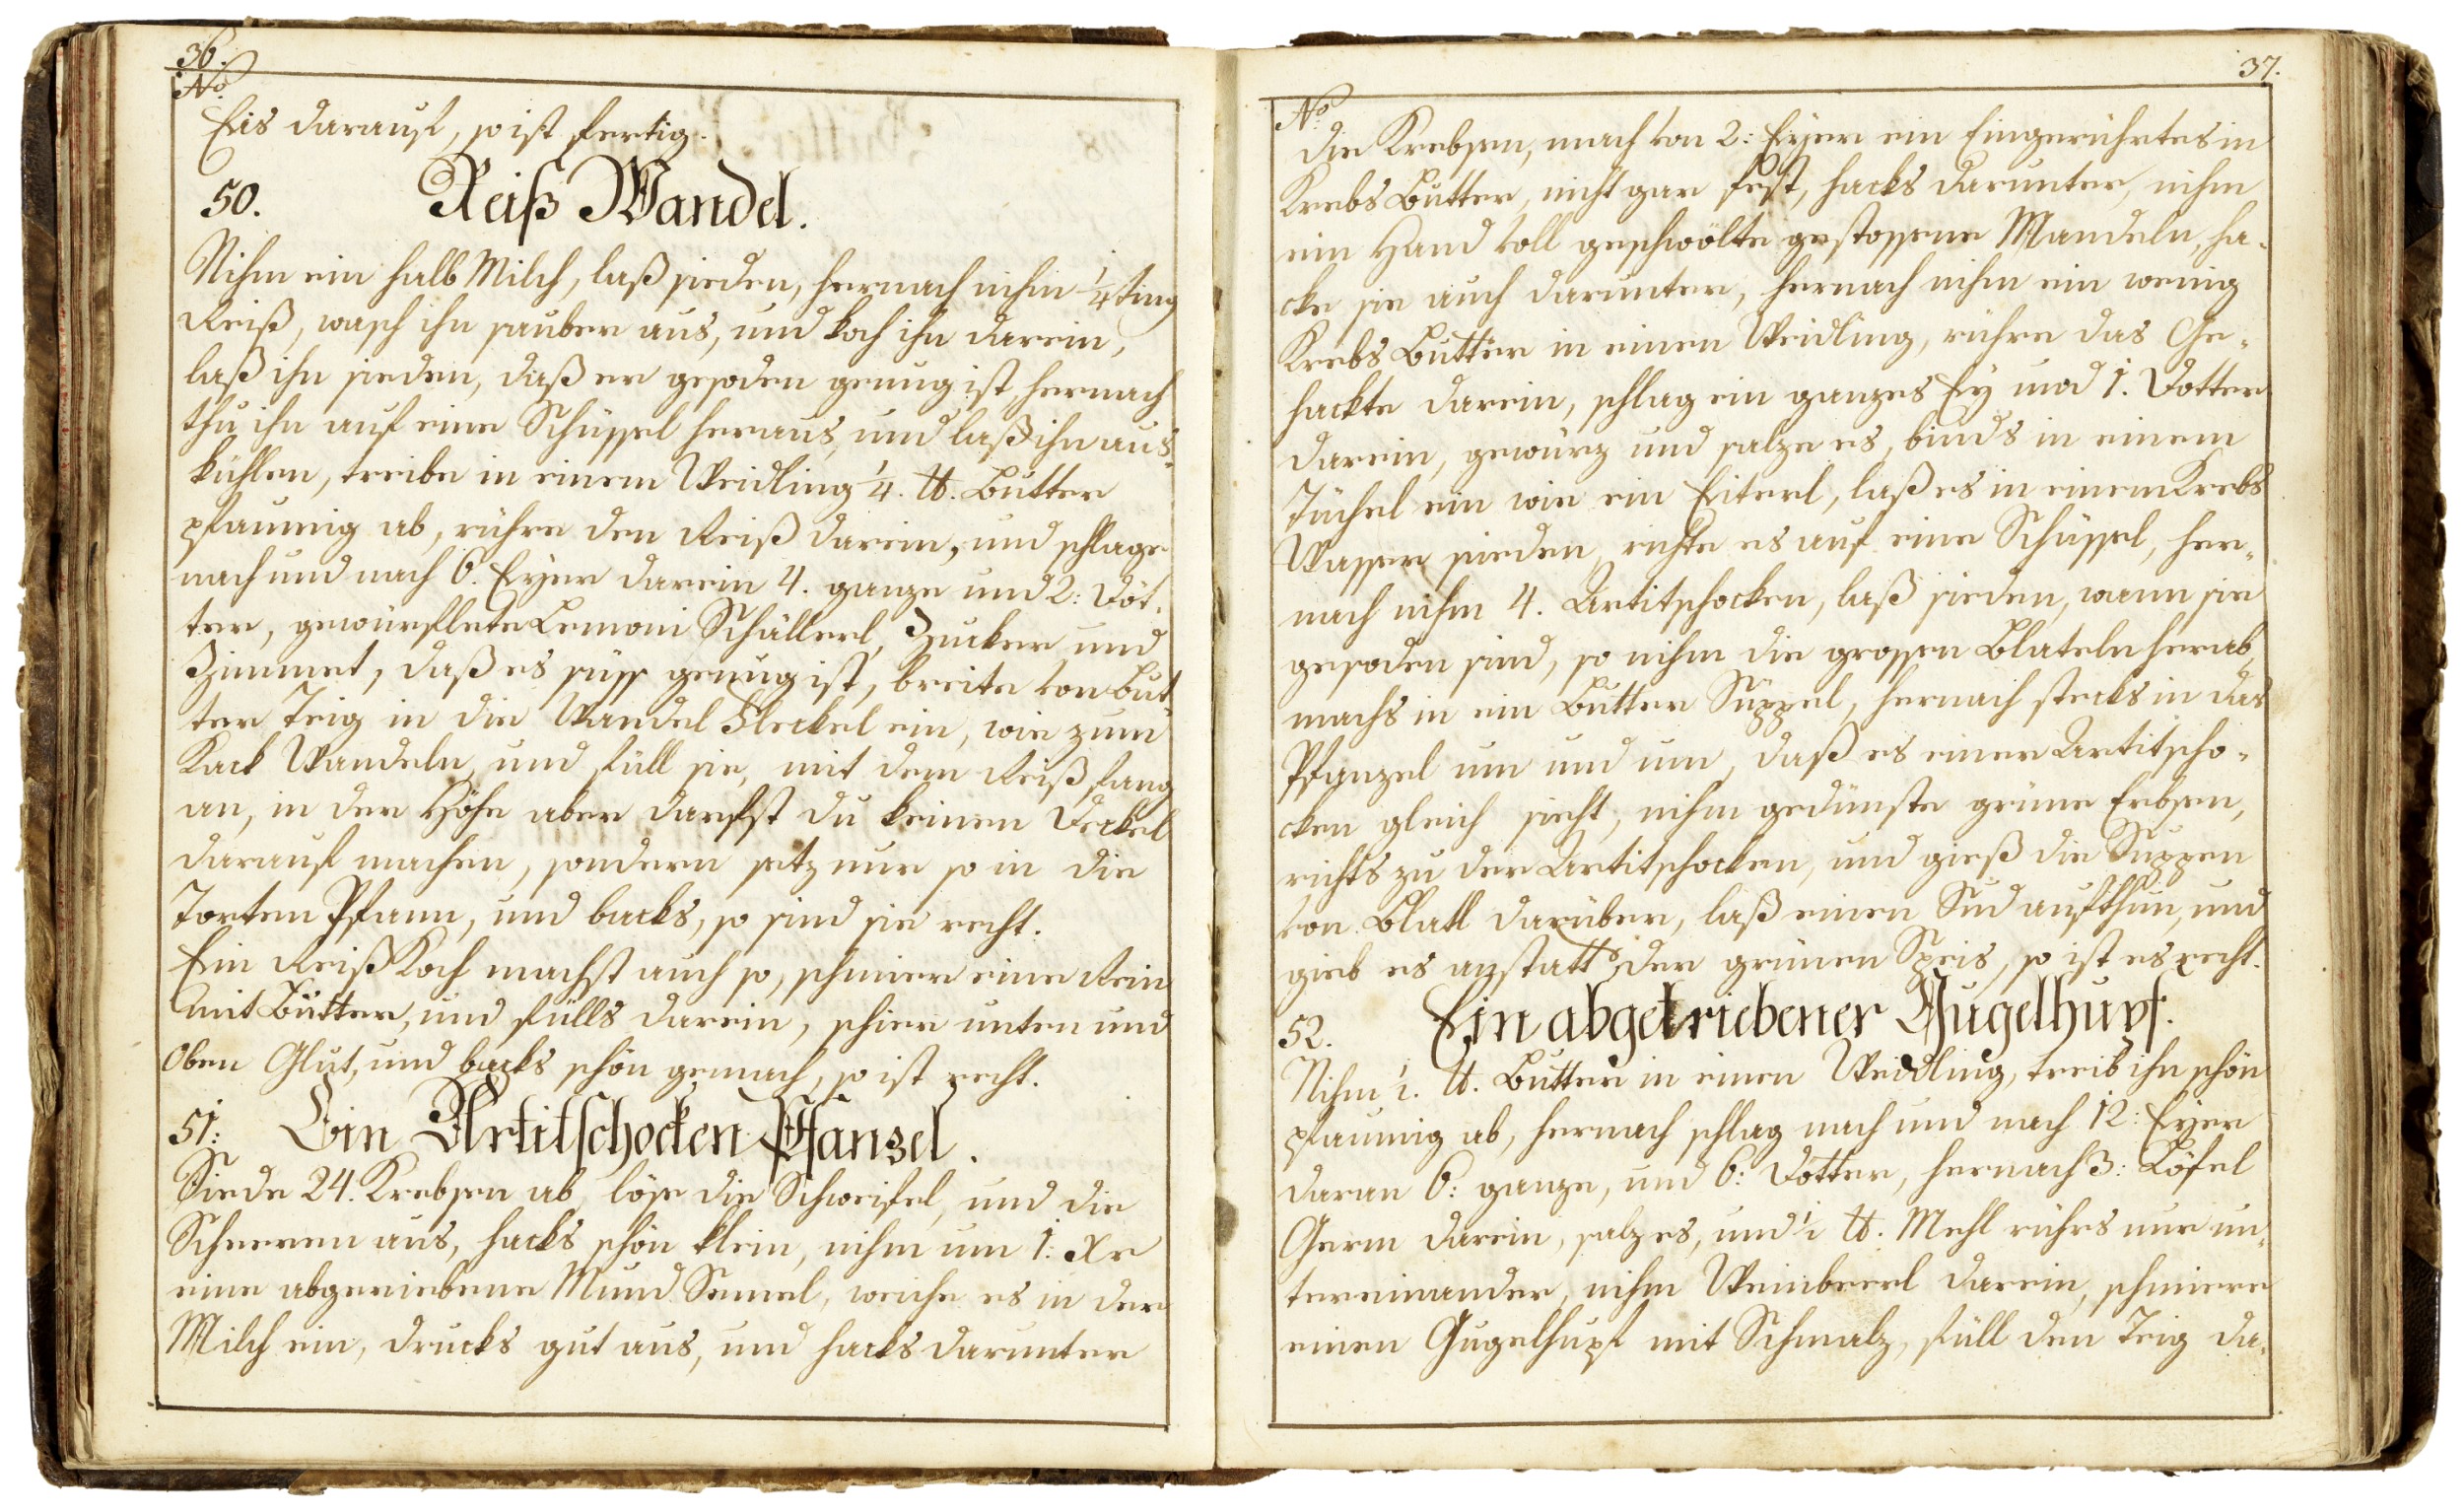 36.
No
Eis darauf, so ist fertig.
50. Reiß Wandel.
Nihm ein halb Milch, laß sieden, hernach nihm 1/4ting
Reiß, wasch ihn sauber aus, und koch ihn darein,
laß ihn sieden, daß er gesoden genug ist, hernach
thu ihn auf eine Schüssel heraus, und laß ihn aus-
kühlen, treibe in einem Weidling 1/4. ℔. Butter
pfaumig ab, rühre den Reiß darein, und schlage
nach und nach 6. Eÿer darein 4. ganze und 2: Döt-
ter, gewürflete Lemoni Schällerl, Zucker und
Zimmet, daß es süss genug ist, breite von But-
ter Teig in die Wandel Fleckel ein, wie zum
Kack Wandeln, und füll sie, mit dem Reiß fang
an, in der Höhe aber darfst du keinen Deckel
darauf machen, sondern setz nur so in die
Torten Pfann, und backs, so sind sie recht.
Ein Reiß Koch machst auch so, schmier eine Rein
mit Butter, und fülls darein, schier unten und
oben Glut, und backs schön gemach, so ist recht.
51: Ein Artitschocken Pfanzel.
Siede 24. Krebsen ab, löse die Schweifel, und die
Scheeren aus, hacks schön klein, nihm um 1: Xr
eine abgeriebene Mund Semel, weiche es in der
Milch ein, drucks gut aus, und hacks darunter
37.
No
die Krebsen, mach von 2: Eÿer ein Eingerührtes in
Krebs Butter, nicht gar fest, hacks darunter, nihm
ein Hand voll geschwölte gestossene Mandeln, ha-
cke sie auch darunter, hernach nihm ein wenig
Krebs Butter in einen Weidling, rühre das Ge-
hackte darein, schlag ein ganzes Eÿ und 1. Dotter
darein, gewürz und salze es, binds in einem
Tüchel ein wie ein Eiterl, laß es in einem Krebs
Wasser sieden, richte es auf eine Schüssel, her-
nach nihm 4. Artitschocken, laß sieden, wann sie
gesoden sind, so nihm die grossen Blateln herab,
machs in ein Butter Süppel, hernach stecks in das
Pfanzel um und um, daß es einer Artitscho-
cken gleich sieht, nihm gedünste grüne Erbsen,
richts zu der Artitschocken, und gieß die Suppen
von Blatl darüber, laß einen Sud aufthun, und
gieb es anstatt der grünen Speis, so ist es recht.
52. Ein abgetriebener Gugelhupf.
Nihm 1/2. ℔. Butter in einen Weidling, treib ihn schön
pfaumig ab, hernach schlag nach und nach 12: Eÿer
daran 6: ganze, und 6: Dotter, hernach 3: Löfel
Germ darein, salz es, und 1/2 ℔. Mehl rührs nur un-
tereinander, nihm Weinbeerl darein, schmiere
einen Gugelhupf mit Schmalz, füll den Teig da-